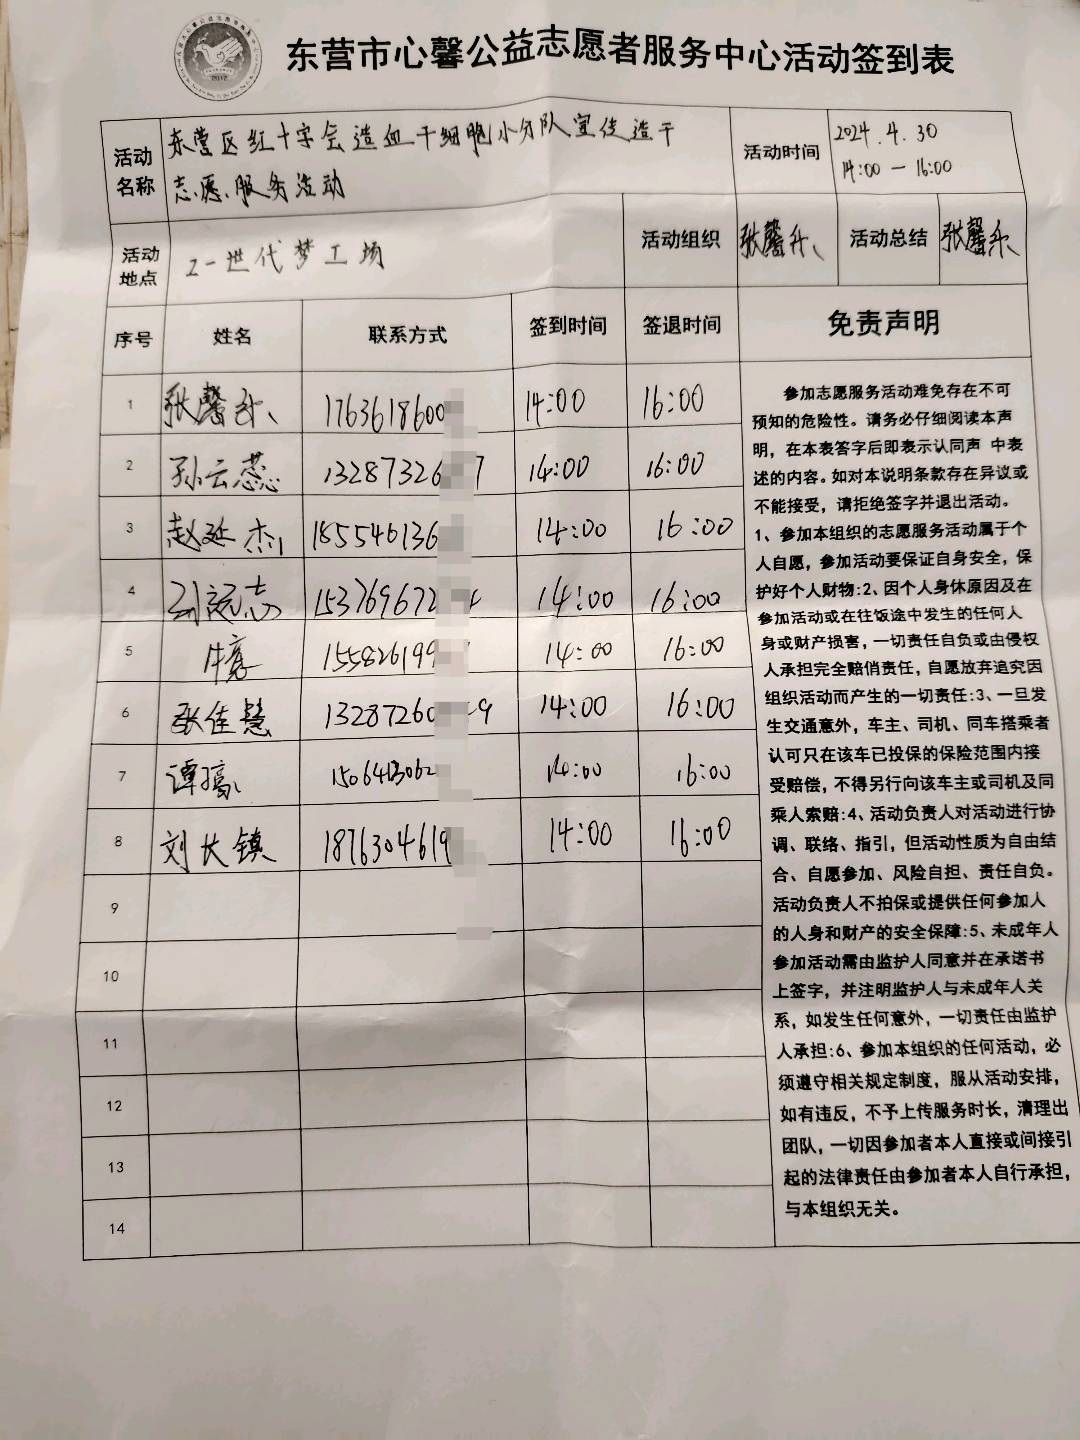 东营市心馨公益志愿者服务中心活动签到表
活动名称
东营区红十字会造血干细胞小分队宣传造干
志愿服务活动
活动时间
2024.4.30
14:00 — 16:00
活动地点
2一世代梦工场
活动组织
张馨
活动总结
张馨
序号 姓名 联系方式 签到时间 签退时间
1 张馨 1763618600 14:00 16:00
2 孙云蕊 13287326 7 14:00 16:00
3 赵延杰 185546136 14:00 16:00
4 刘志 153769672 4 14:00 16:00
5 牛 155826199 14:00 16:00
6 张佳慧 13287260 9 14:00 16:00
7 谭 1506413062 14:00 16:00
8 刘长镇 1876304619 14:00 16:00
9
10
11
12
13
14
免责声明
参加志愿服务活动难免存在不可
预知的危险性。请务必仔细阅读本声
明，在本表答字后即表示认同声 中表
述的内容。如对本说明条款存在异议或
不能接受，请拒绝签字并退出活动。
1、参加本组织的志愿服务活动属于个
人自愿，参加活动要保证自身安全，保
护好个人财物:2、因个人身休原因及在
参加活动或在往饭途中发生的任何人
身或财产损害，一切责任自负或由侵权
人承担完全赔俏责任，自愿放弃追究因
组织活动而产生的一切责任:3、一旦发
生交通意外，车主、司机、同车搭乘者
认可只在该车已投保的保险范围内接
受赔偿，不得另行向该车主或司机及同
乘人索赔:4、活动负责人对活动进行协
调、联络、指引，但活动性质为自由结
合、自愿参加、风险自担、责任自负。
活动负责人不拍保或提供任何参加人
的人身和财产的安全保障:5、未成年人
参加活动需由监护人同意并在承诺书
上签字，并注明监护人与未成年人关
系，如发生任何意外，一切责任由监护
人承担:6、参加本组织的任何活动，必
须遵守相关规定制度，服从活动安排，
如有违反，不予上传服务时长，清理出
团队，一切因参加者本人直接或间接引
起的法律责任由参加者本人自行承担，
与本组织无关。